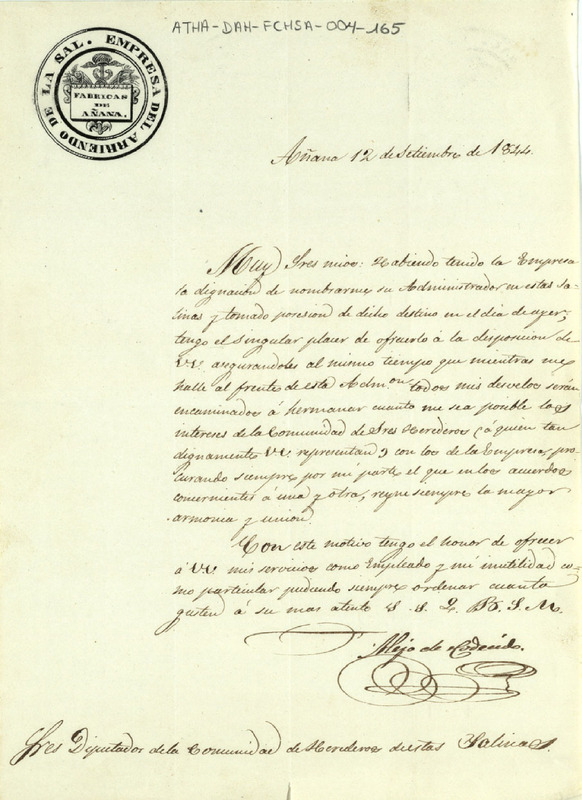 ATHA-DAH-FCHSA-004-165
EMPRESA DEL ARRIENDO DE LA SAL.
FABRICAS
DE
AÑANA.
Añana 12 de Setiembre de 1844.
Muy Sres mios: Habiendo tenido la Empresa
la dignacion de nombrarme su Administrador en estas Sa-
linas y tomado posesion de dicho destino en el dia de ayer,
tengo el singular placer de ofrecerlo á la disposicion de
VV. asegurandoles al mismo tiempo que mientras me
halle al frente de esta Adm.on todos mis desvelos serán
encaminados á hermanar cuanto me sea posible los
intereses de la Comunidad de Sres Herederos (á quien tan
dignamente VV. representan) con los de la Empresa, pro-
curando siempre por mi parte el que en los acuerdos
concernientes á una y otra, reyne siempre la mayor
armonia y union.
Con este motivo tengo el honor de ofrecer
á VV. mis servicios como Empleado y mi inutilidad co-
mo particular pudiendo siempre ordenar cuanto
gusten á su mas atento S. S. Q. B. S. M.
Alejo de
Sres Diputados de la Comunidad de Herederos de estas Salinas.